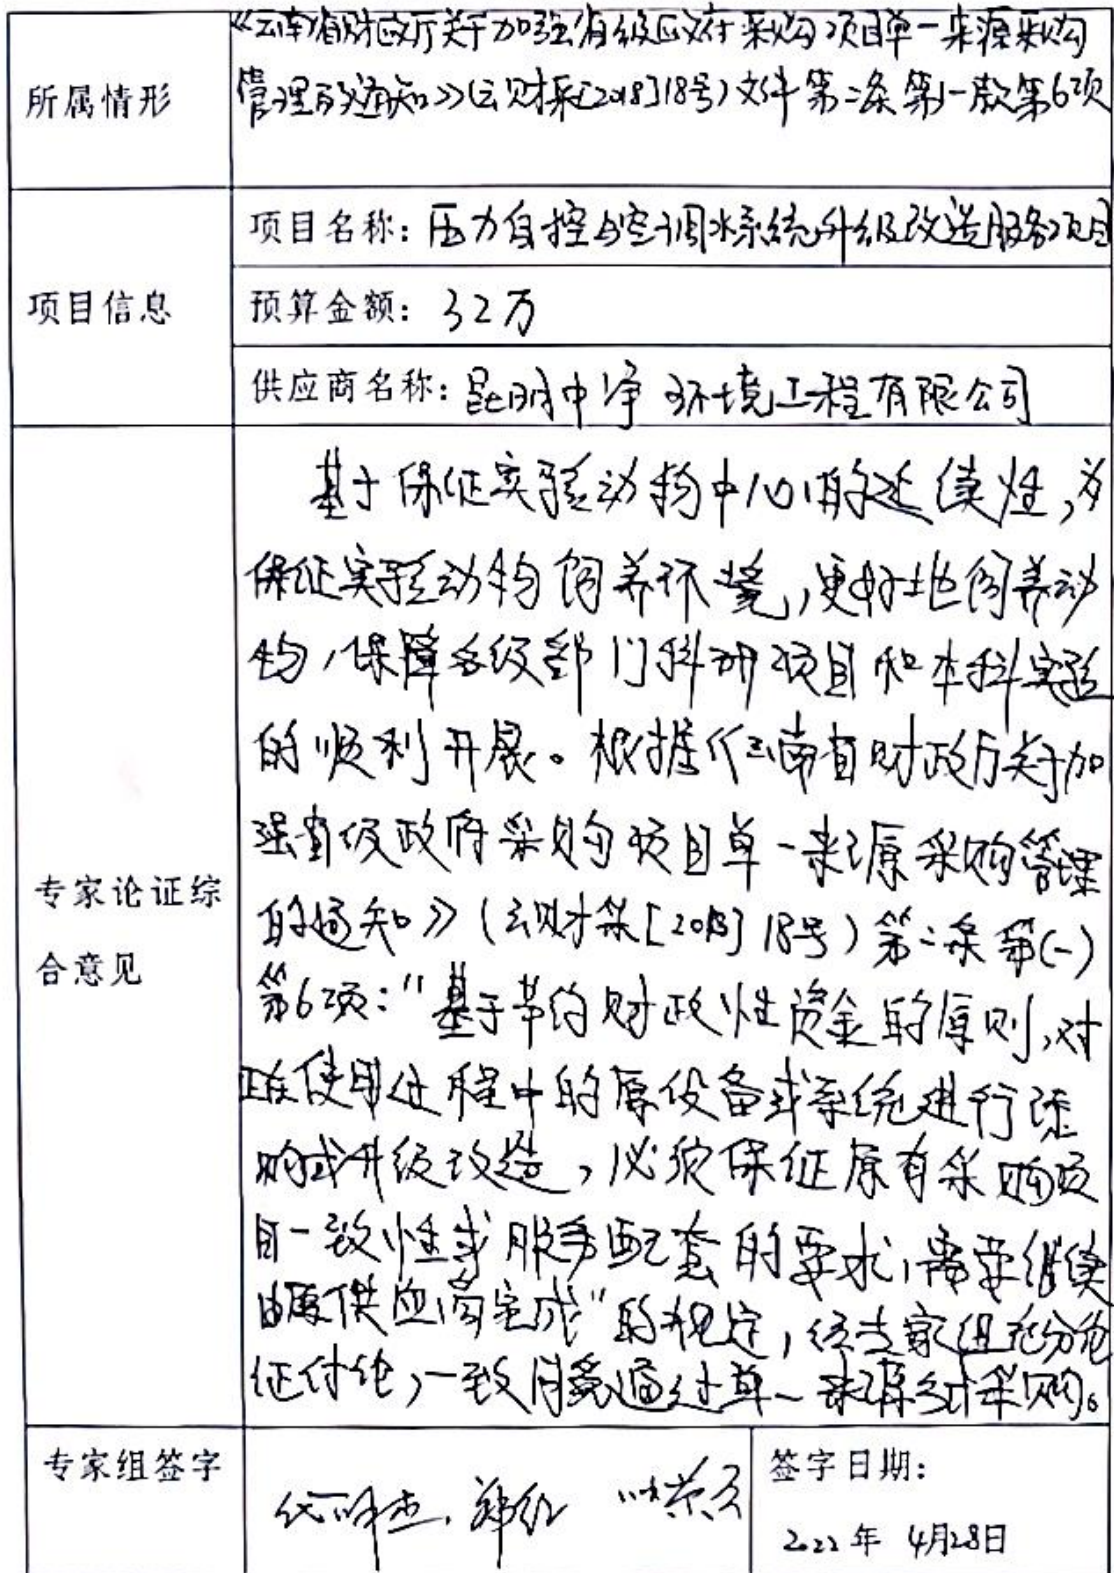 所属情形
《云南省财政厅关于加强省级政府采购项目单一来源采购
管理的通知》(云财采[2018]18号)文件第二条第一款第6项
项目信息
项目名称：压力自控与空调水系统升级改造服务项目
预算金额：32万
供应商名称：昆明中净环境工程有限公司
专家论证综
合意见
基于保证实验动物中心的延续性，为
保证实验动物饲养环境，更好地饲养动
物，保障各级部门科研项目和本科实验
的顺利开展。根据《云南省财政厅关于加
强省级政府采购项目单一来源采购管理
的通知》(云财采[2018]18号)第二条第(一)
第6项："基于节约财政性资金的原则，对
正在使用过程中的原设备或系统进行添
购或升级改造，必须保证原有采购项
目一致性或服务配套的要求，需要继续
由原供应商完成"的规定，经专家组充分论
证讨论，一致同意通过单一来源方式采购。
专家组签字
签字日期：
2022年 4月28日